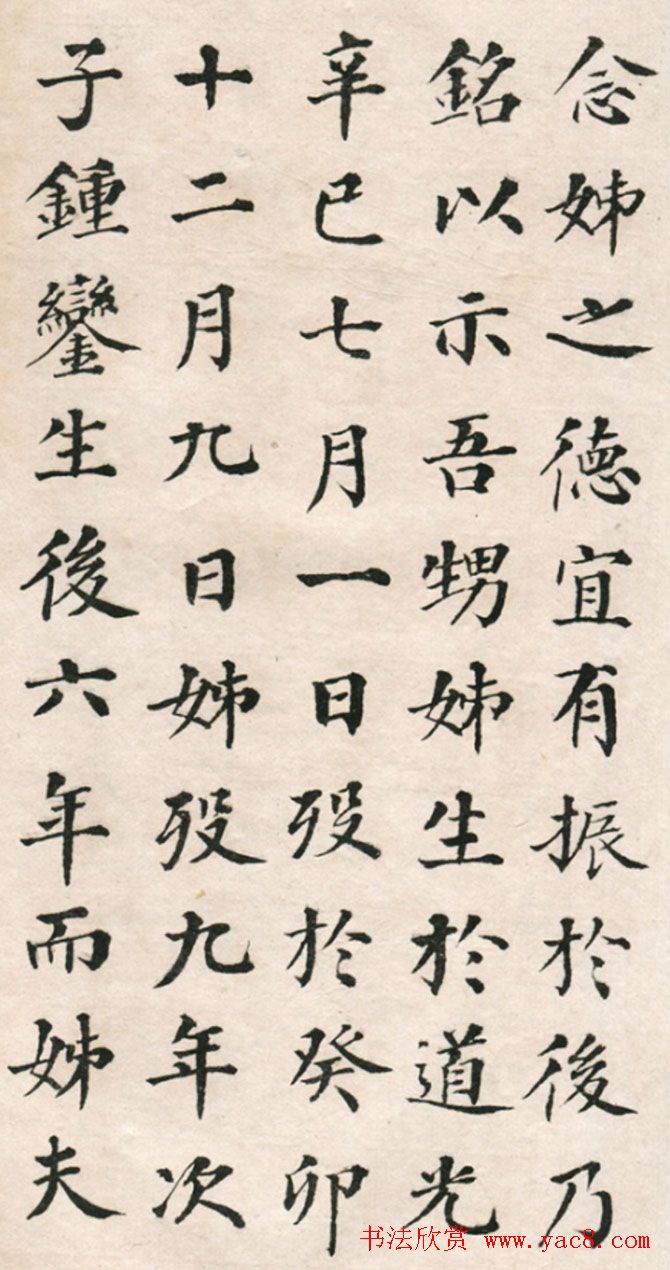 念姊之德宜有振於後乃
銘以示吾甥姊生於道光
辛巳七月一日歿於癸卯
十二月九日姊歿九年次
子鍾鑾生後六年而姊夫
书法欣赏 www.yac8.com